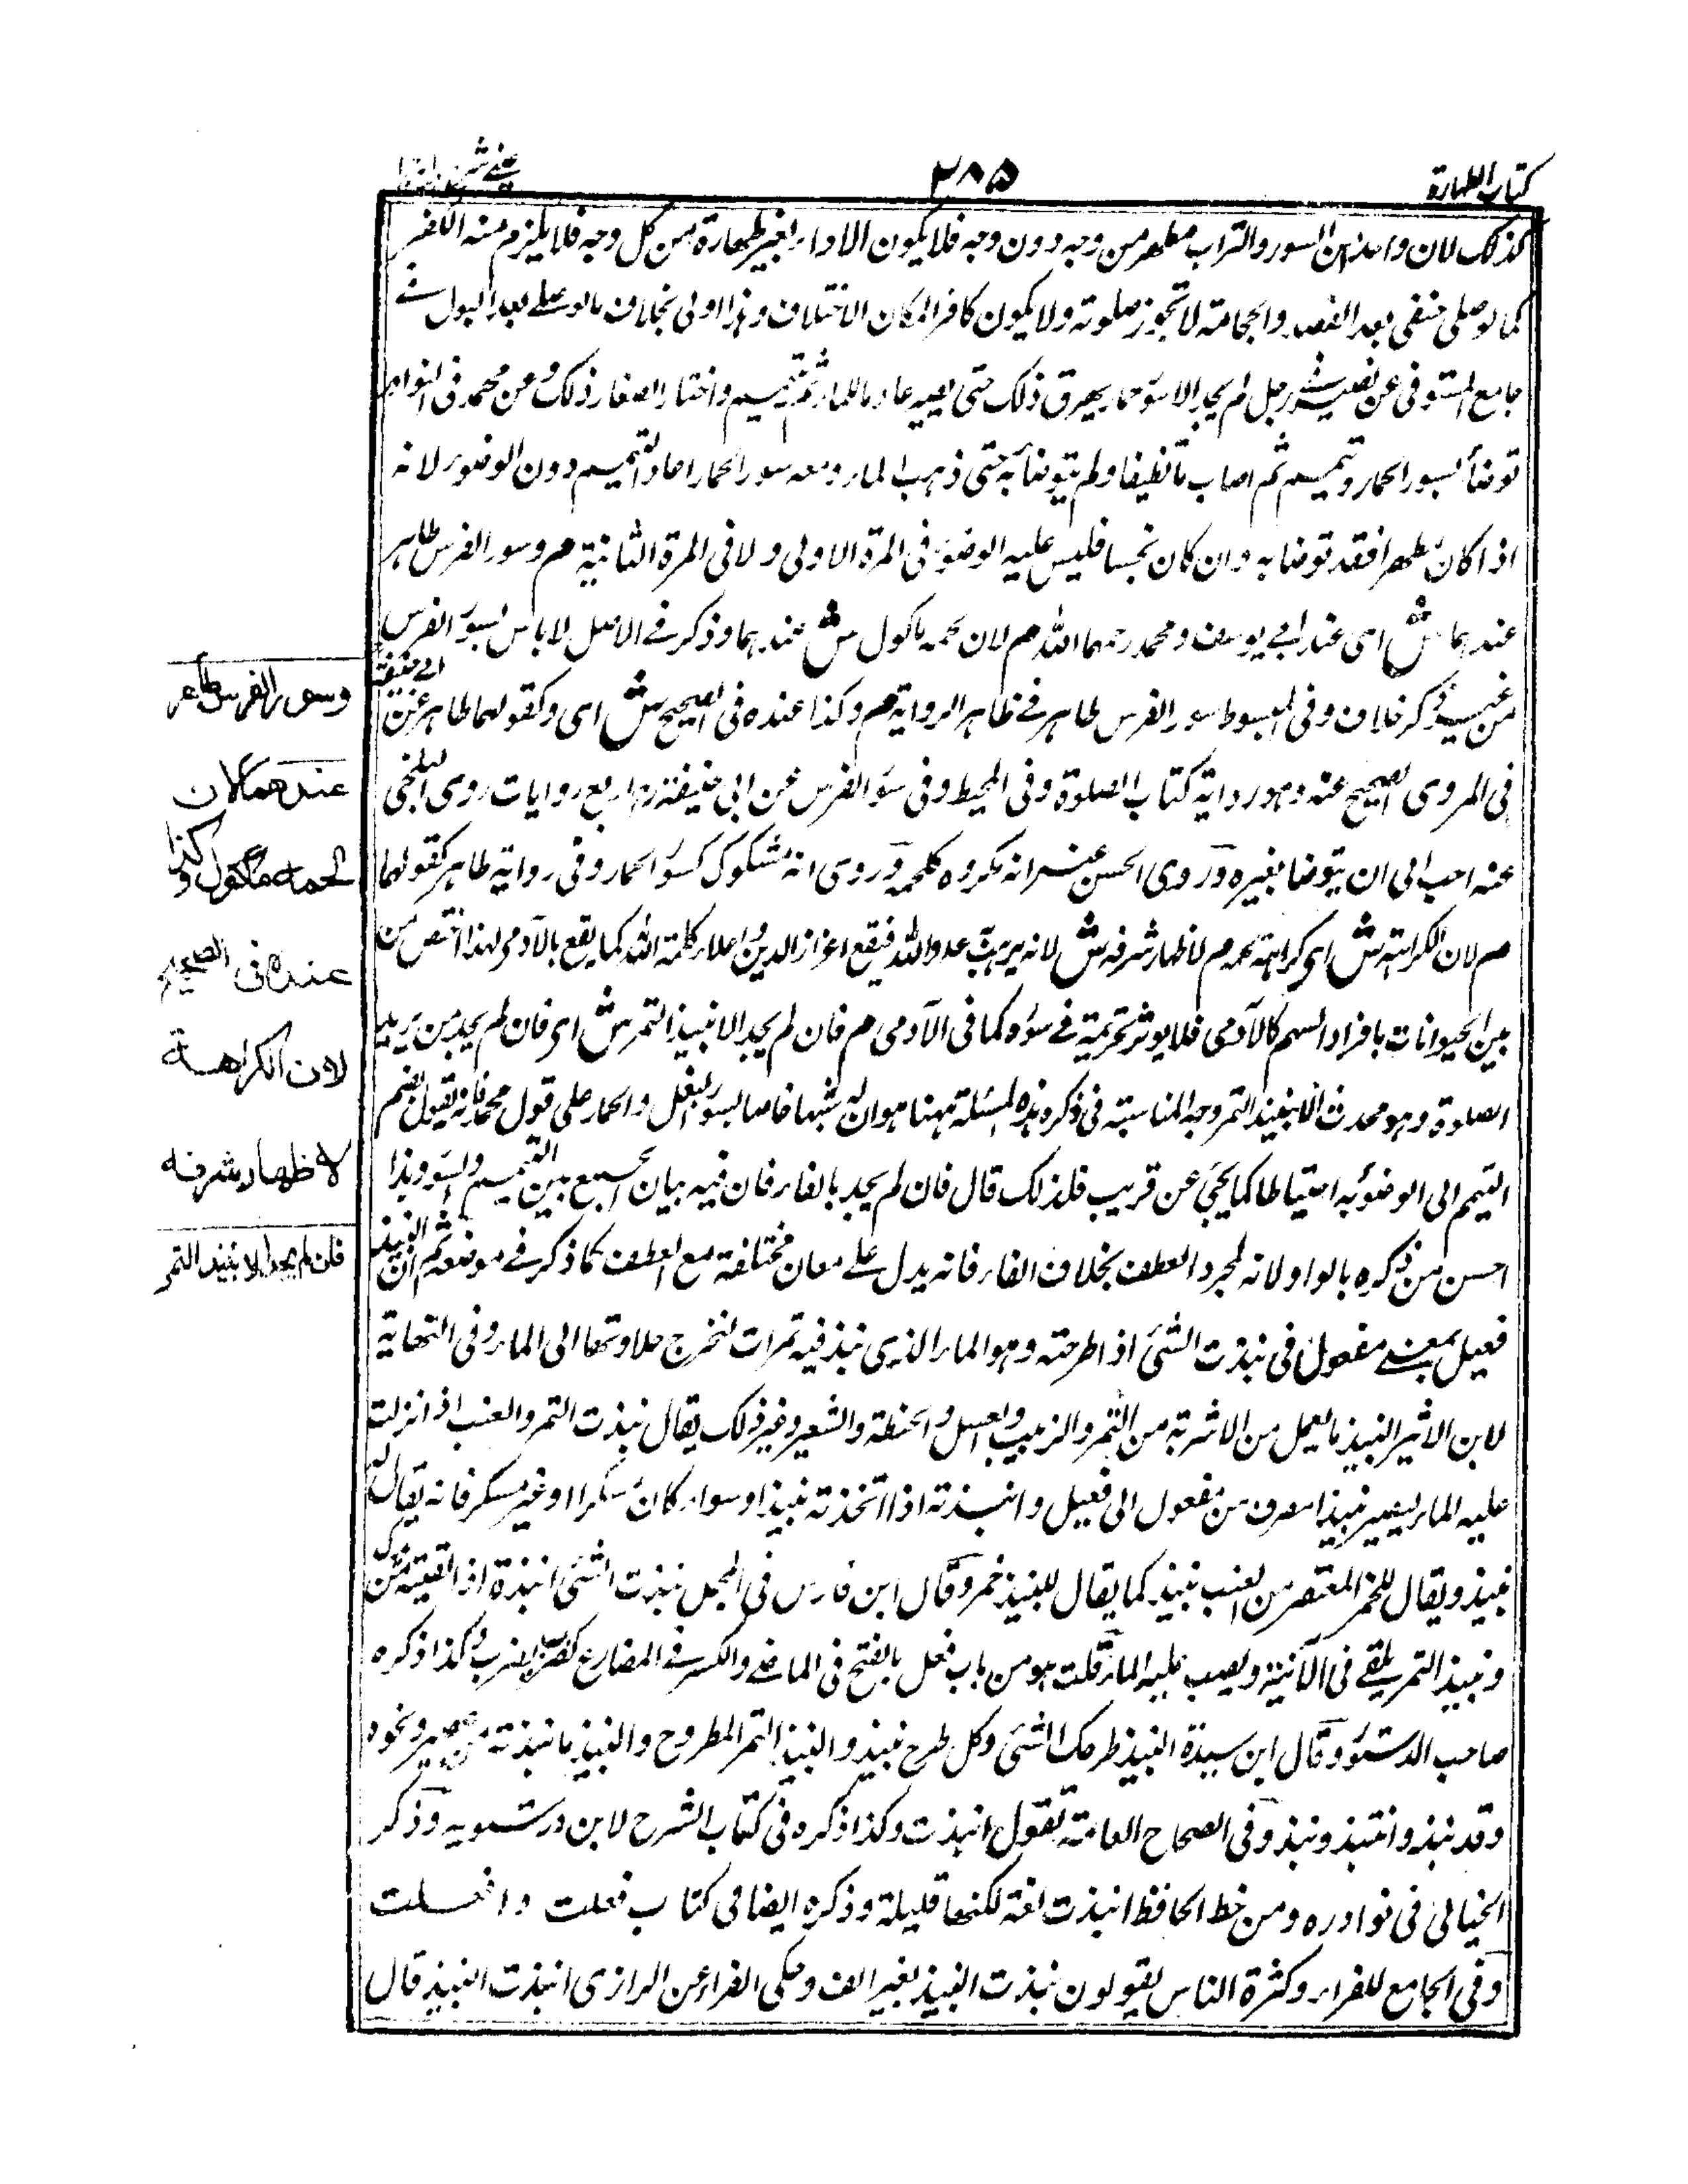 كتاب الطهارة
٢٨٥
عينى شرح
كذلك لان واحدا من السور والتراب مطهر من وجه دون وجه فلا يكون الاداء بغير طهارة من كل وجه فلا يلزم منه الكفر
كما لو صلى حنفى بعد الفصد والحجامة لا تجوز صلوته ولا يكون كافرا لمكان الاختلاف وهذا اولى بخلاف ما لو صلى بعد البول فى
جامع المستوفى عن نصير فى رجل لم يجد الا سؤر حمار يهريق ذلك حتى يصير عادما للماء ثم يتيمم واختار الصفار ذلك وعن محمد فى النوادر
توضأ بسور الحمار وتيمم ثم اصاب ماء نظيفا ولم يتوضأ به حتى ذهب الماء ومعه سور الحمار اعاد التيمم دون الوضوء لانه
اذا كان مطهرا فقد توضا به وان كان نجسا فليس عليه الوضوء فى المرة الاولى ولا فى المرة الثانية م وسور الفرس طاهر
عندهما ش اى عند ابى يوسف ومحمد رحمهما الله م لان لحمه ماكول ش عندهما وذكر فى الاصل لا باس بسور الفرس
من غير ذكر خلاف وفى المبسوط سور الفرس طاهر فى ظاهر الرواية م وكذا عنده فى الصحيح ش اى وكقولهما طاهر عن ابى حنيفة
فى المروى الصحيح عنه وهو رواية كتاب الصلوة وفى المحيط وفى سؤر الفرس عن ابى حنيفة اربع روايات روى البلخى
عنه احب الى ان يتوضا بغيره وروى الحسن عنه انه مكروه كلحمه وروى انه مشكوك كسؤر الحمار وفى رواية طاهر كقولهما
م لان الكراهة ش اى كراهة لحمه م لاظهار شرفه ش لانه يرهب به عدو الله فيقع اعزاز الدين واعلاء كلمة الله كما يقع بالآدمى ولهذا اختص من
بين الحيوانات بافراد السهم كالآدمى فلا يوثر تحريمه فى سؤره كما فى الآدمى م فان لم يجد الا نبيذ التمر ش اى فان لم يجد من يريد
الصلوة وهو محدث الا نبيذ التمر وجه المناسبة فى ذكره هذه المسئلة ههنا هو ان له شبها خاصا بسور البغل والحمار على قول محمد فانه يقول بضم
التيمم الى الوضوء به احتياطا كما يجئ عن قريب فلذلك قال فان لم يجد بالفاء فان فيه بيان الجمع بين التيمم والسؤر وهذا
احسن من ذكره بالواو لانه لمجرد العطف بخلاف الفاء فانه يدل على معان مختلفة مع العطف كما ذكر فى موضعه ثم ان النبيذ
فعيل بمعنى مفعول فى نبذت الشئ اذا طرحته وهو الماء الذى نبذ فيه تمرات لتخرج حلاوتها الى الماء وفى النهاية
لابن الاثير النبيذ ما يعمل من الاشربة من التمر والزبيب والعسل والحنطة والشعير وغير ذلك يقال نبذت التمر والعنب اذا نزلت
عليه الماء ليصير نبيذا صرف من مفعول الى فعيل وانتبذته اذا اتخذته نبيذا وسواء كان مسكرا او غير مسكر فانه يقال له
نبيذ ويقال للخمر المعتصر من العنب نبيذ كما يقال للنبيذ خمر وقال ابن فارس فى المجمل نبذت الشئ انبذه اذا القيته من
ونبيذ التمر يلقى فى الآنية ويصب عليه الماء قلت هو من باب فعل بالفتح فى الماضى والكسر فى المضارع كضرب يضرب وكذا ذكره
صاحب الدستور وقال ابن سيدة النبيذ طرحك الشئ وكل طرح نبيذ والنبيذ التمر المطروح والنبيذ ما نبذته من عصير ونحوه
وقد نبذ وانتبذ ونبذ وفى الصحاح العامة تقول انبذت وكذا ذكره فى كتاب الشرح لابن درستويه وذكر
الخيالى فى نوادره ومن خط الحافظ انبذت لغة لكنها قليلة وذكره ايضا فى كتاب فعلت وافعلت
وفى الجامع للفراء وكثرة الناس يقولون نبذت النبيذ بغير الف وحكى الفراء عن الرازى انبذت النبيذ قال
وسور الفرس طاهر
عندهما لان
لحمه ماكول وكذا
عنده فى الصحيح
لان الكراهة
لاظهار شرفه
فان لم يجد الا نبيذ التمر